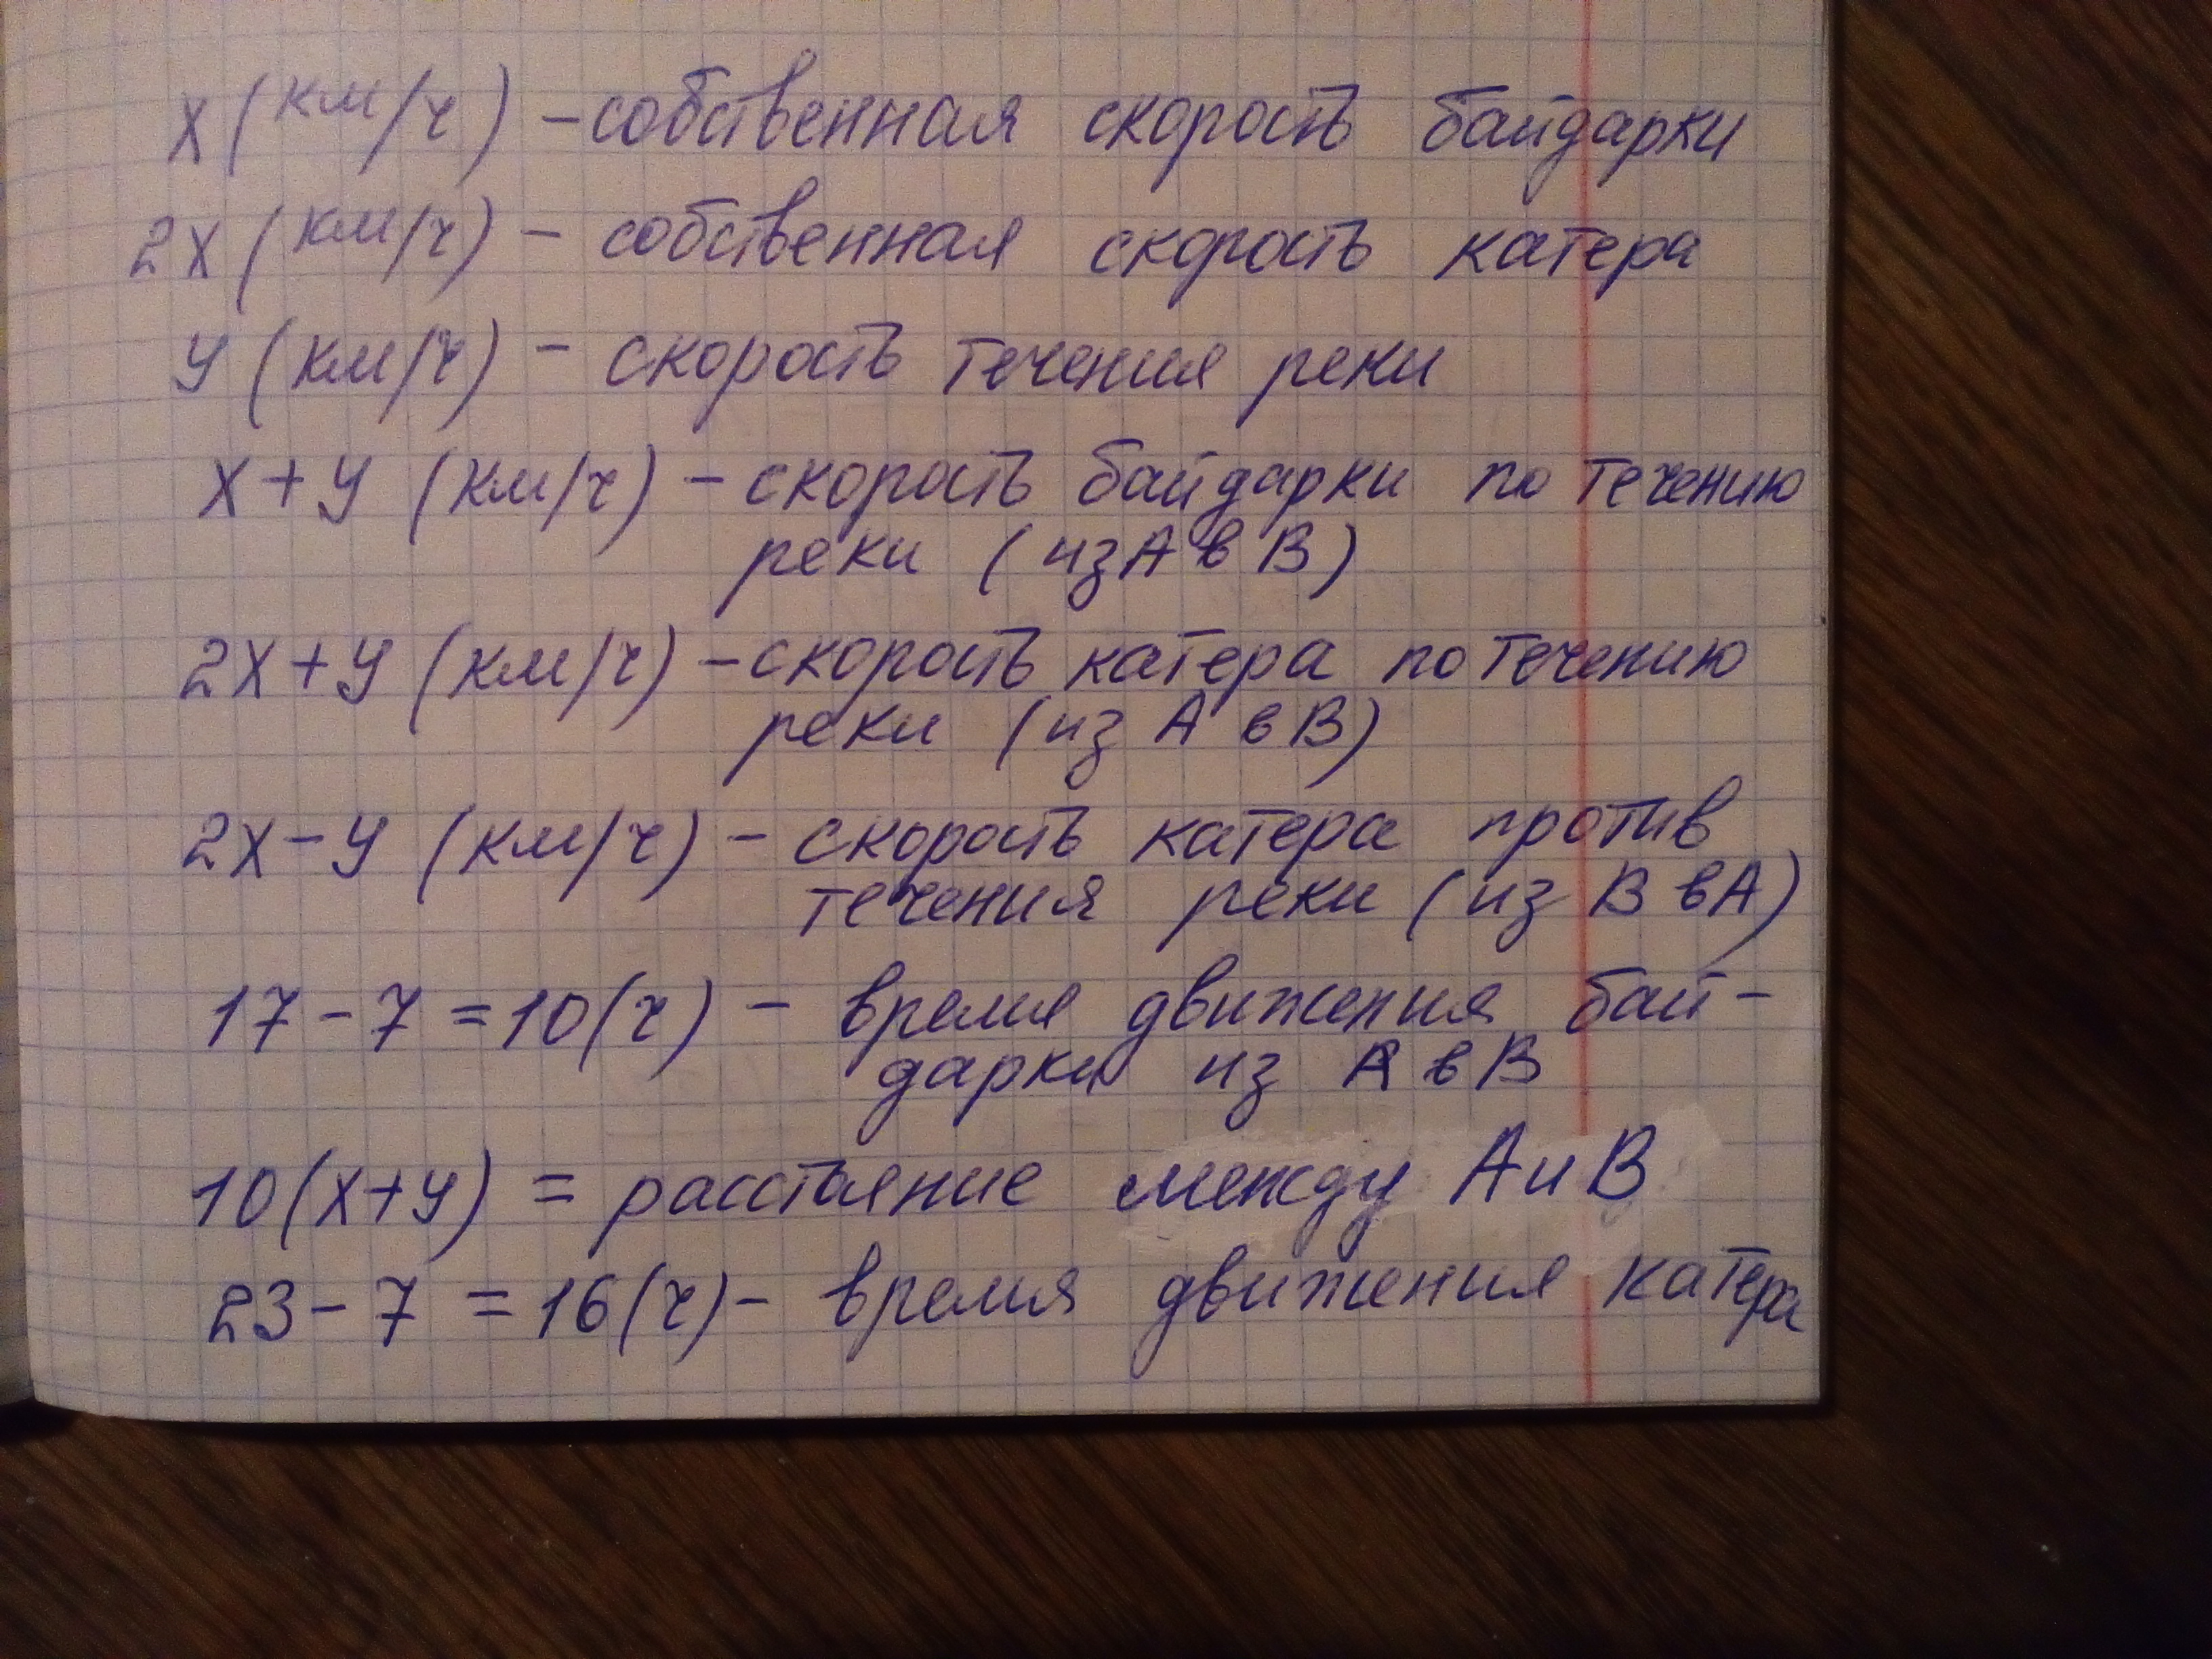 х (км/ч) – собственная скорость байдарки
2х (км/ч) – собственная скорость катера
у (км/ч) – скорость течения реки
х + у (км/ч) – скорость байдарки по течению
реки (из А в В)
2х + у (км/ч) – скорость катера по течению
реки (из А в В)
2х – у (км/ч) – скорость катера против
течения реки (из В в А)
17 – 7 = 10 (ч) – время движения бай-
дарки из А в В
10 (х+у) = расстояние между А и В
23 – 7 = 16 (ч) – время движения катера